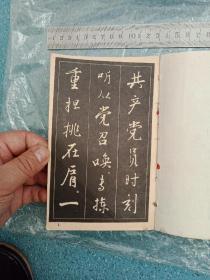 共产党员时刻
听从党召唤，专拣
重担挑在肩。一